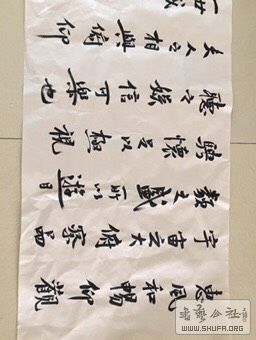 惠風和暢仰觀
宇宙之大俯察品
類之盛所以遊目
騁懷足以極視
聽之娛信可樂也
夫人之相與俯仰
一世或
書藝公社
WWW.SHUFA.ORG